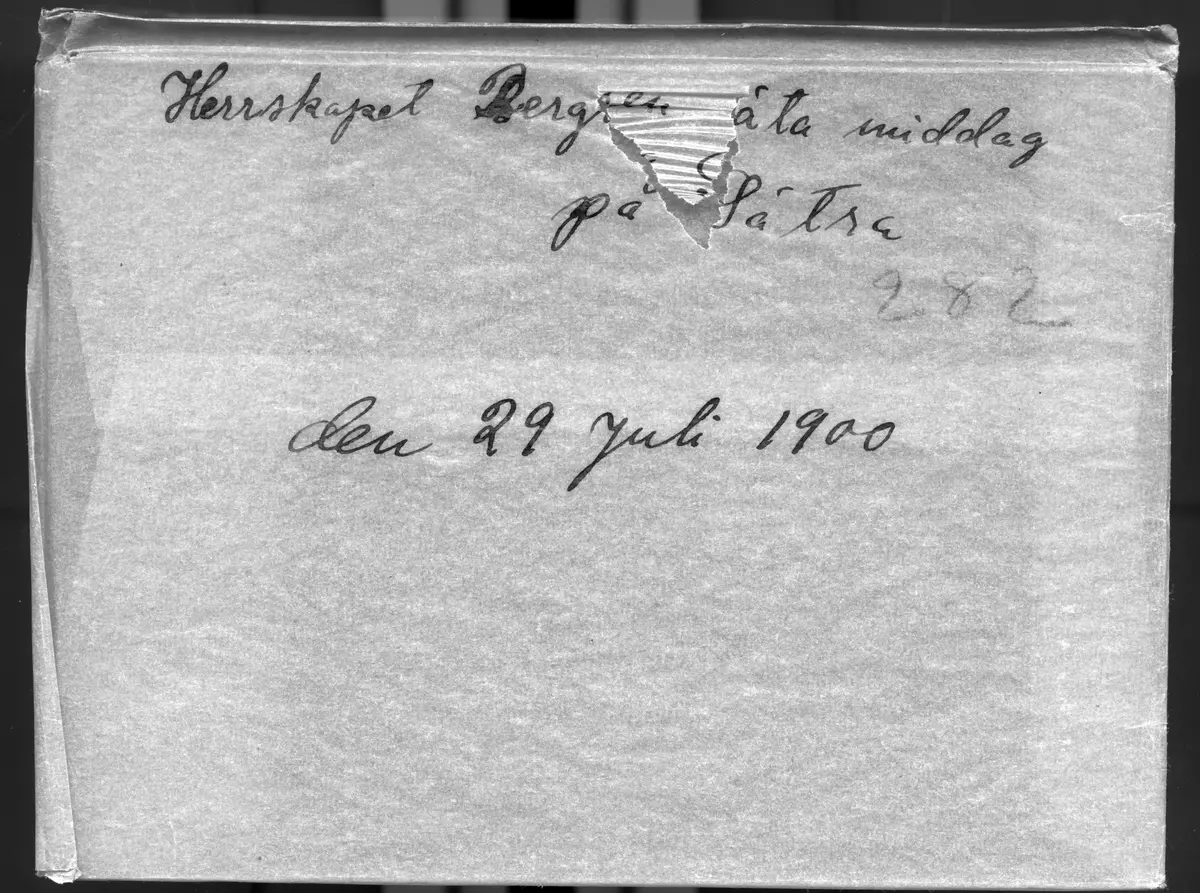 Herrskapet Bergren äta middag
på Sätra
282
den 29 juli 1900